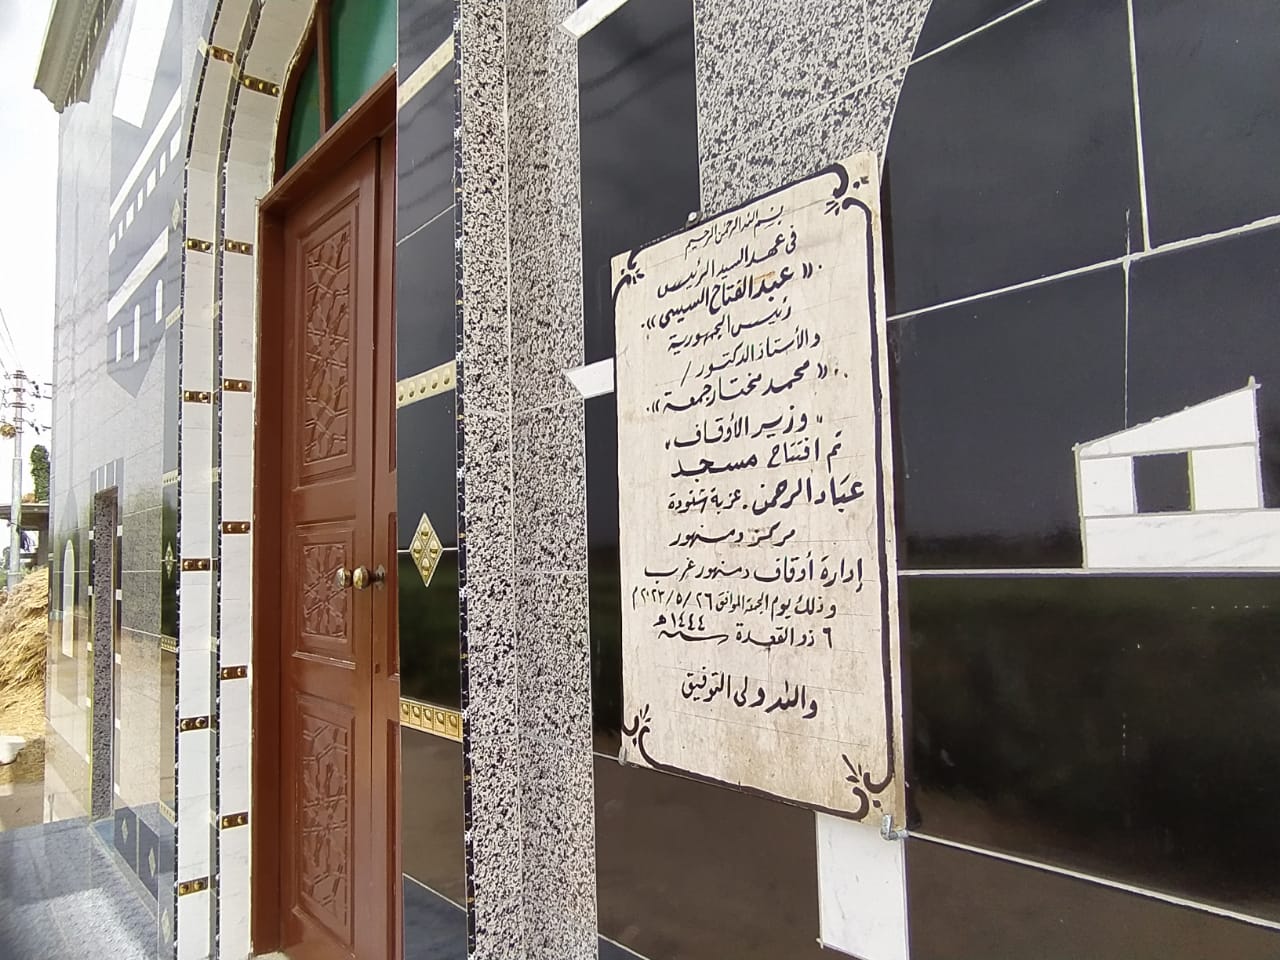 بسم الله الرحمن الرحيم
فى عهد السيد الرئيس
«عبد الفتاح السيسى»
رئيس الجمهورية
والأستاذ الدكتور /
«محمد مختار جمعة»
"وزير الأوقاف"
تم افتتاح مسجد
عباد الرحمن - عزبة شنودة
مركز دمنهور
إدارة أوقاف دمنهور غرب
وذلك يوم الجمعة الموافق ٢٠٢٣/٥/٢٦م
٦ ذو القعدة سنة ١٤٤٤هـ
والله ولى التوفيق